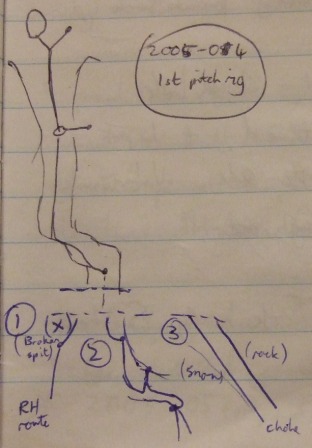 2005-04
1st pitch rig
1
X
(Broken
spit)
2
3
(rock)
(snow)
RH
route
choke